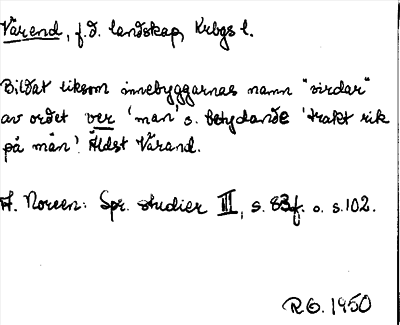 Värend, f.d. landskap, Krbgs l.
Bildat liksom innebyggarnas namn "virdar"
av ordet ver 'man' o. betydande 'trakt rik
på män'. Äldst Värand.
A. Noreen: Spr. studier III, s. 83f. o. s.102.
R.G. 1950